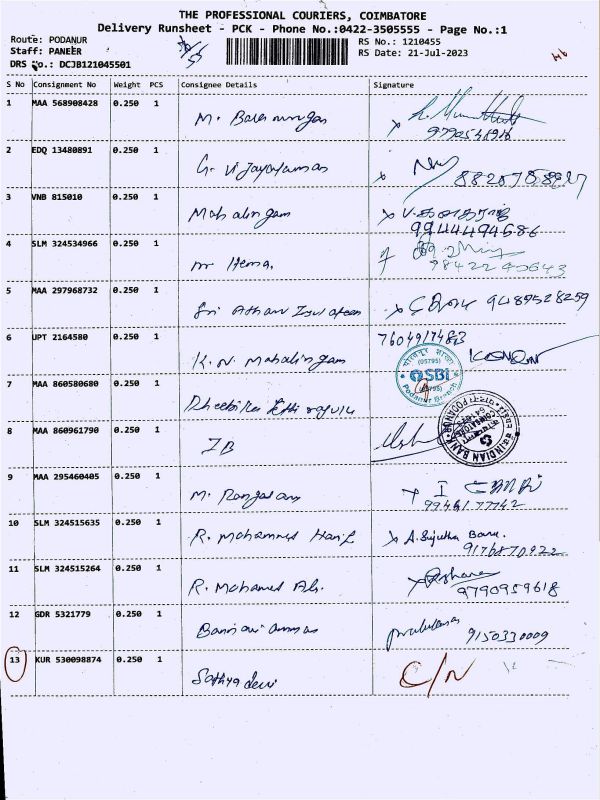 THE PROFESSIONAL COURIERS, COIMBATORE
Delivery Runsheet - PCK - Phone No.:0422-3505555 - Page No.:1
Route: PODANUR
Staff: PANEER
DRS No.: DCJB121045501
RS No.: 1210455
RS Date: 21-Jul-2023
S No Consignment No Weight PCS Consignee Details Signature
1 MAA 568908428 0.250 1 M. Balamurugan
2 EDQ 13480891 0.250 1 G. Vijayalamas
3 VNB 815010 0.250 1 Mahalingam
9944494586
4 SLM 324534966 0.250 1 Mr Hema.
9842290643
5 MAA 297968732 0.250 1 Sri 9489528259
6 UPT 2164580 0.250 1 K.N. Mahalingam
7604917483
SBI
(05795)
Podanur Branch
7 MAA 860580680 0.250 1
8 MAA 860961790 0.250 1 IB
INDIAN BANK PODANUR
9 MAA 295460405 0.250 1 M. Rangasam
10 SLM 324515635 0.250 1 R. Mohammed Hanif A. Sujitha Banu.
9176870922
11 SLM 324515264 0.250 1 R. Mohamed Ali.
9790959618
12 GDR 5321779 0.250 1 Bannari amman
9150330009
13 KUR 530098874 0.250 1 Sathya devi C/N